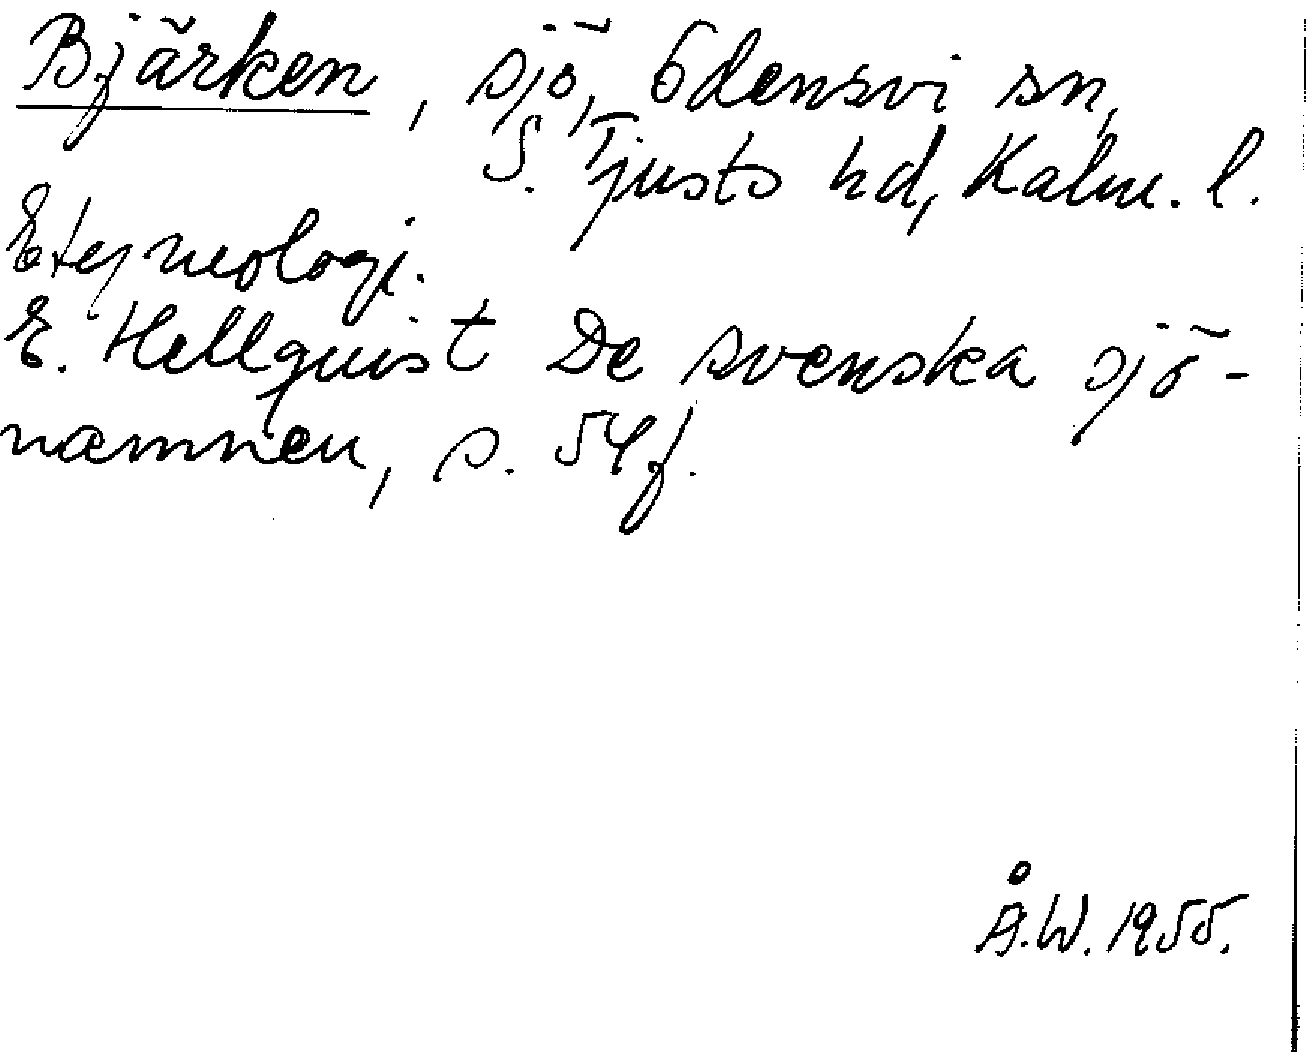 Bjärken, sjö, Odensvi sn,
S. Tjusts hd, Kalm. l.
Etymologi.
E. Hellquist De svenska sjö-
namnen, s. 54 f.
Å.W. 1955.